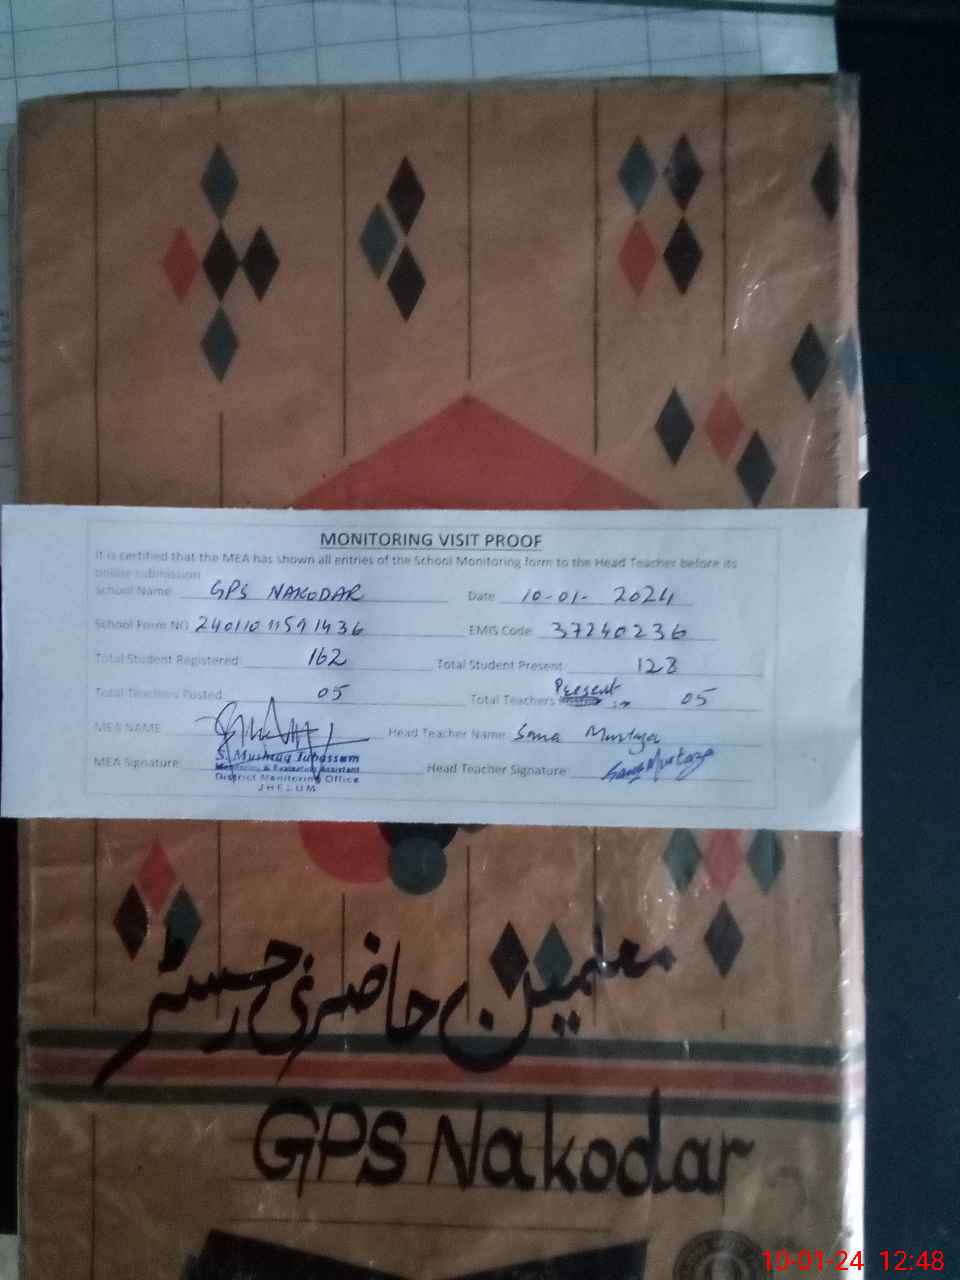 MONITORING VISIT PROOF
It is certified that the MEA has shown all entries of the School Monitoring form to the Head Teacher before its
online submission
School Name GPS NAKODAR Date 10-01- 2024
School Form NO 24011011591436 EMIS Code: 37240236
Total Student Registered: 162 Total Student Present: 128
Total Teachers Posted: 05 Total Teachers Present 05
MEA NAME Head Teacher Name: Sana Murtaza
MEA Signature: S. Mushtaq Tabassum Head Teacher Signature: Sana Murtaza
Monitoring & Evaluation Assistant
District Monitoring Office
JHELUM
معلمین حاضری رجسٹر
GPS Nakodar
10-01-24 12:48